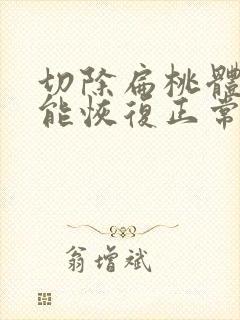 切除扁桃體
能恢復正常
翁增斌